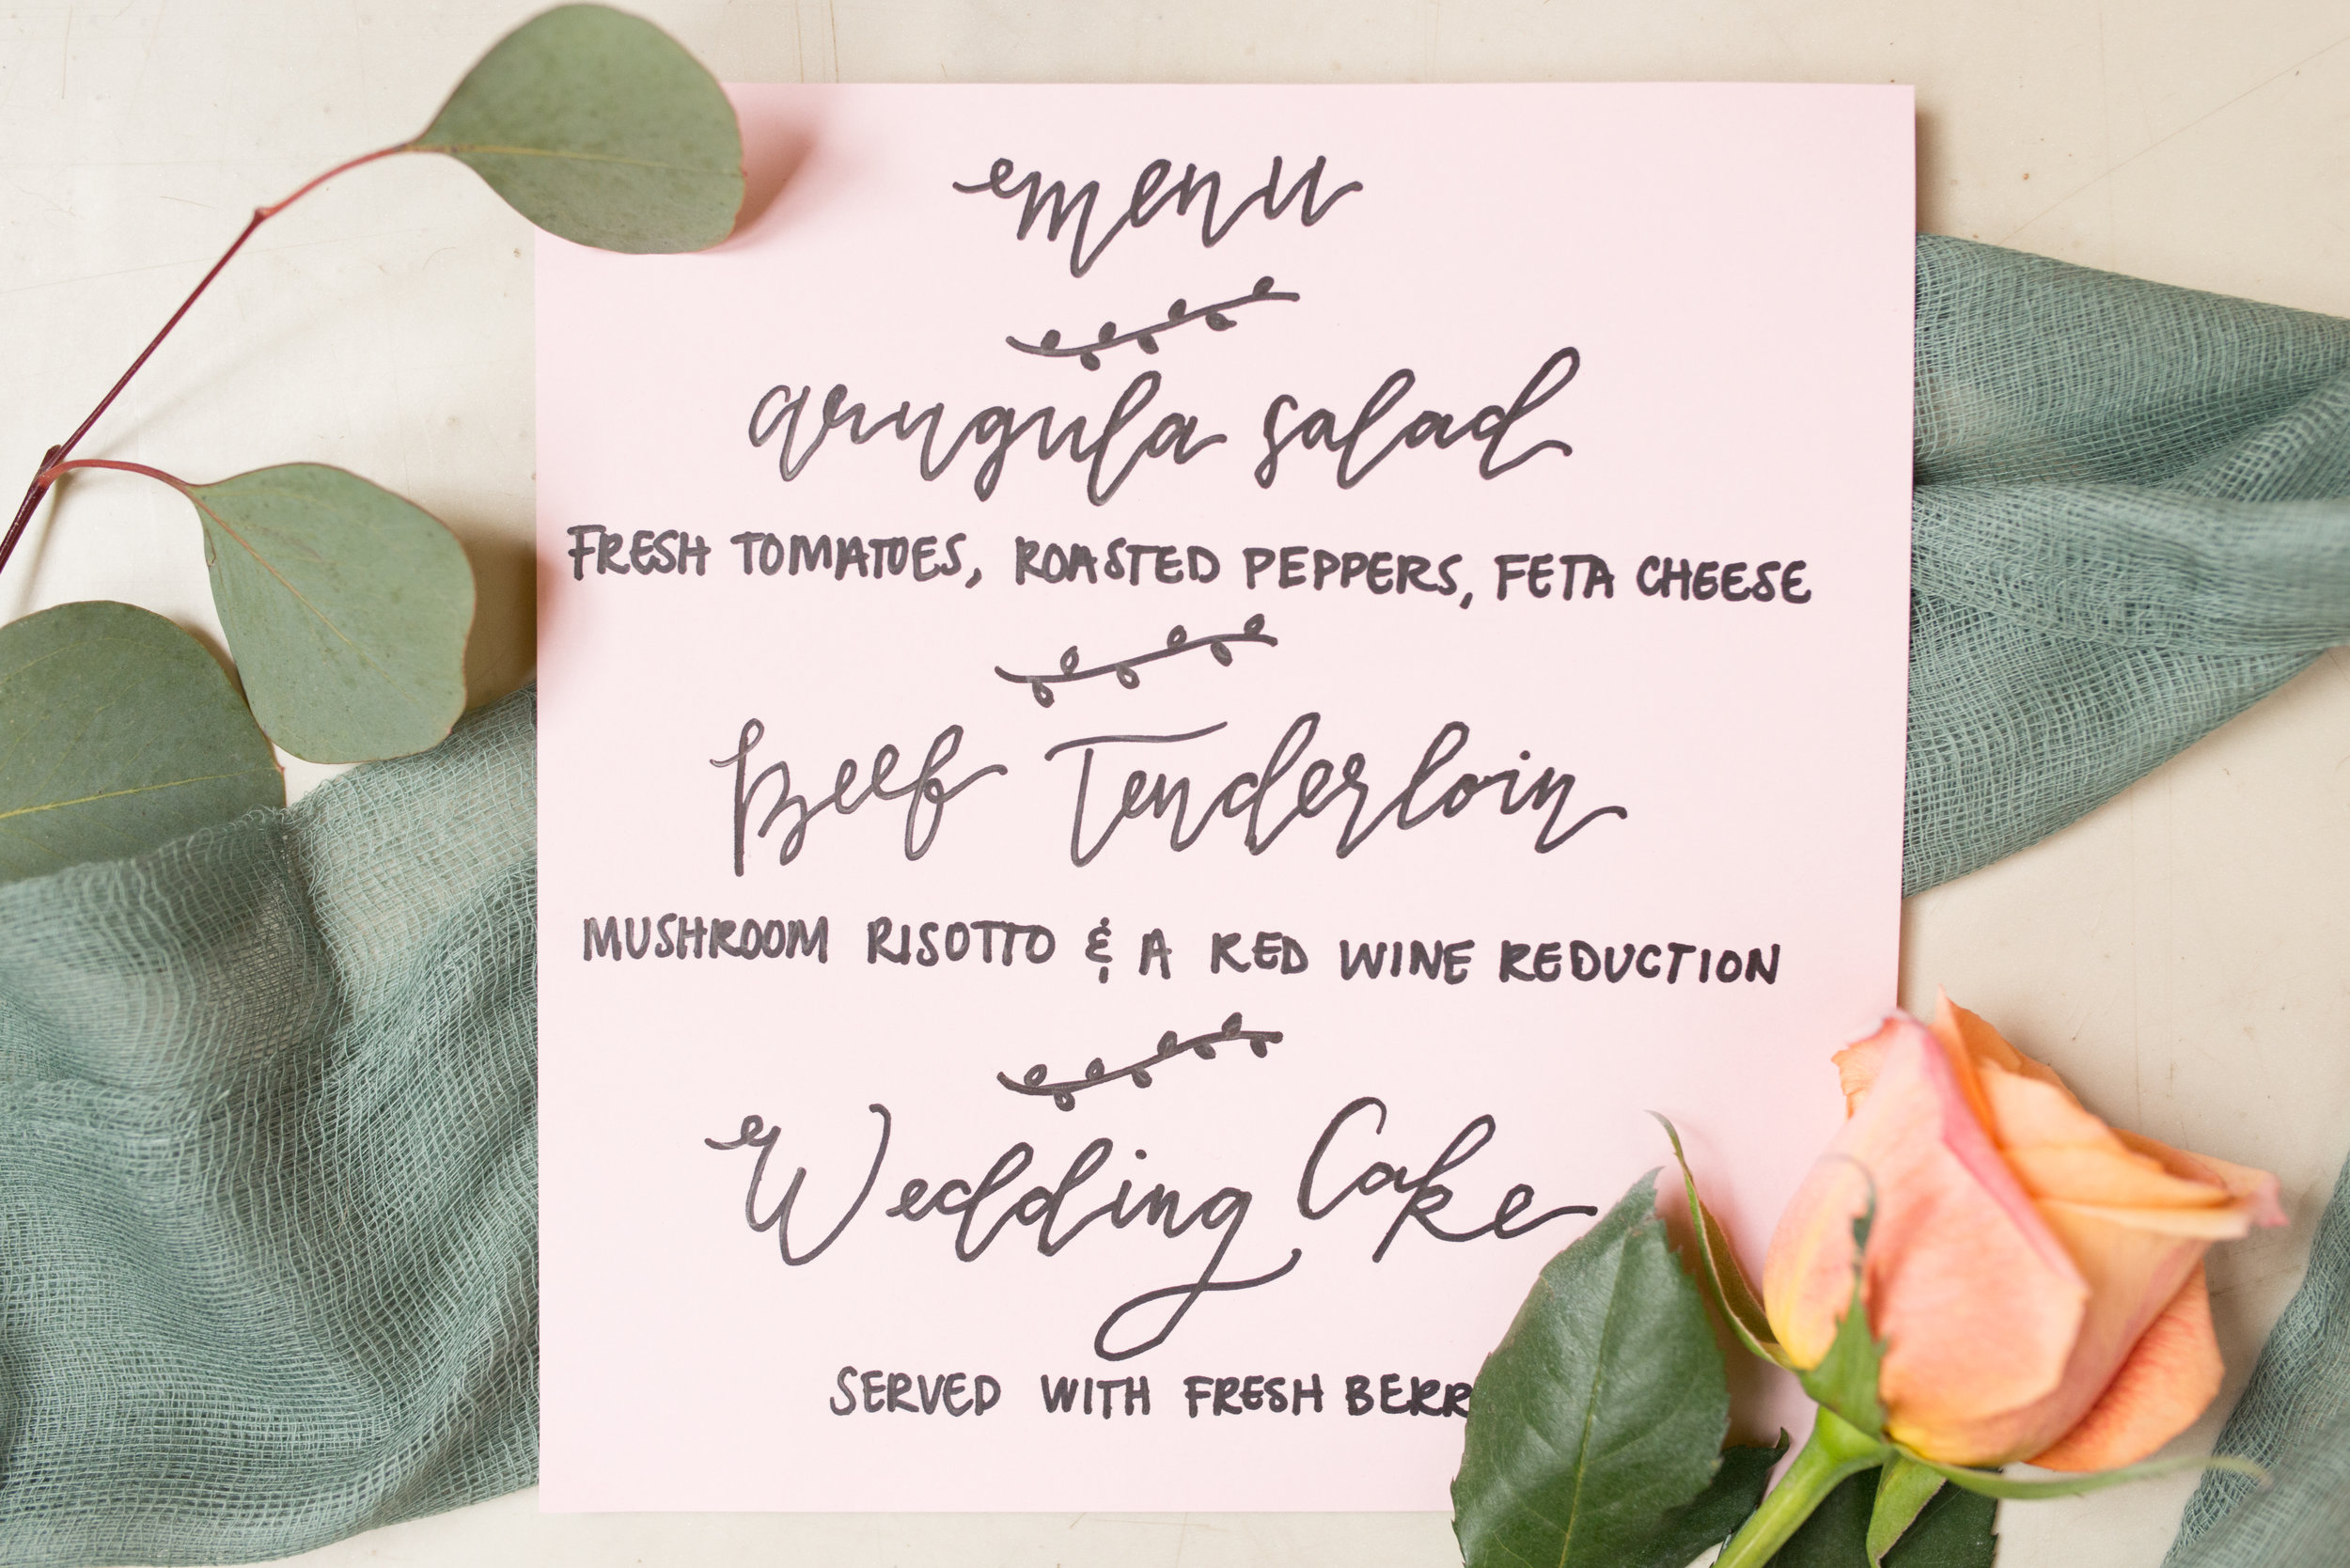 menu
arugula salad
FRESH TOMATOES, ROASTED PEPPERS, FETA CHEESE
Beef Tenderloin
MUSHROOM RISOTTO & A RED WINE REDUCTION
Wedding Cake
SERVED WITH FRESH BERR